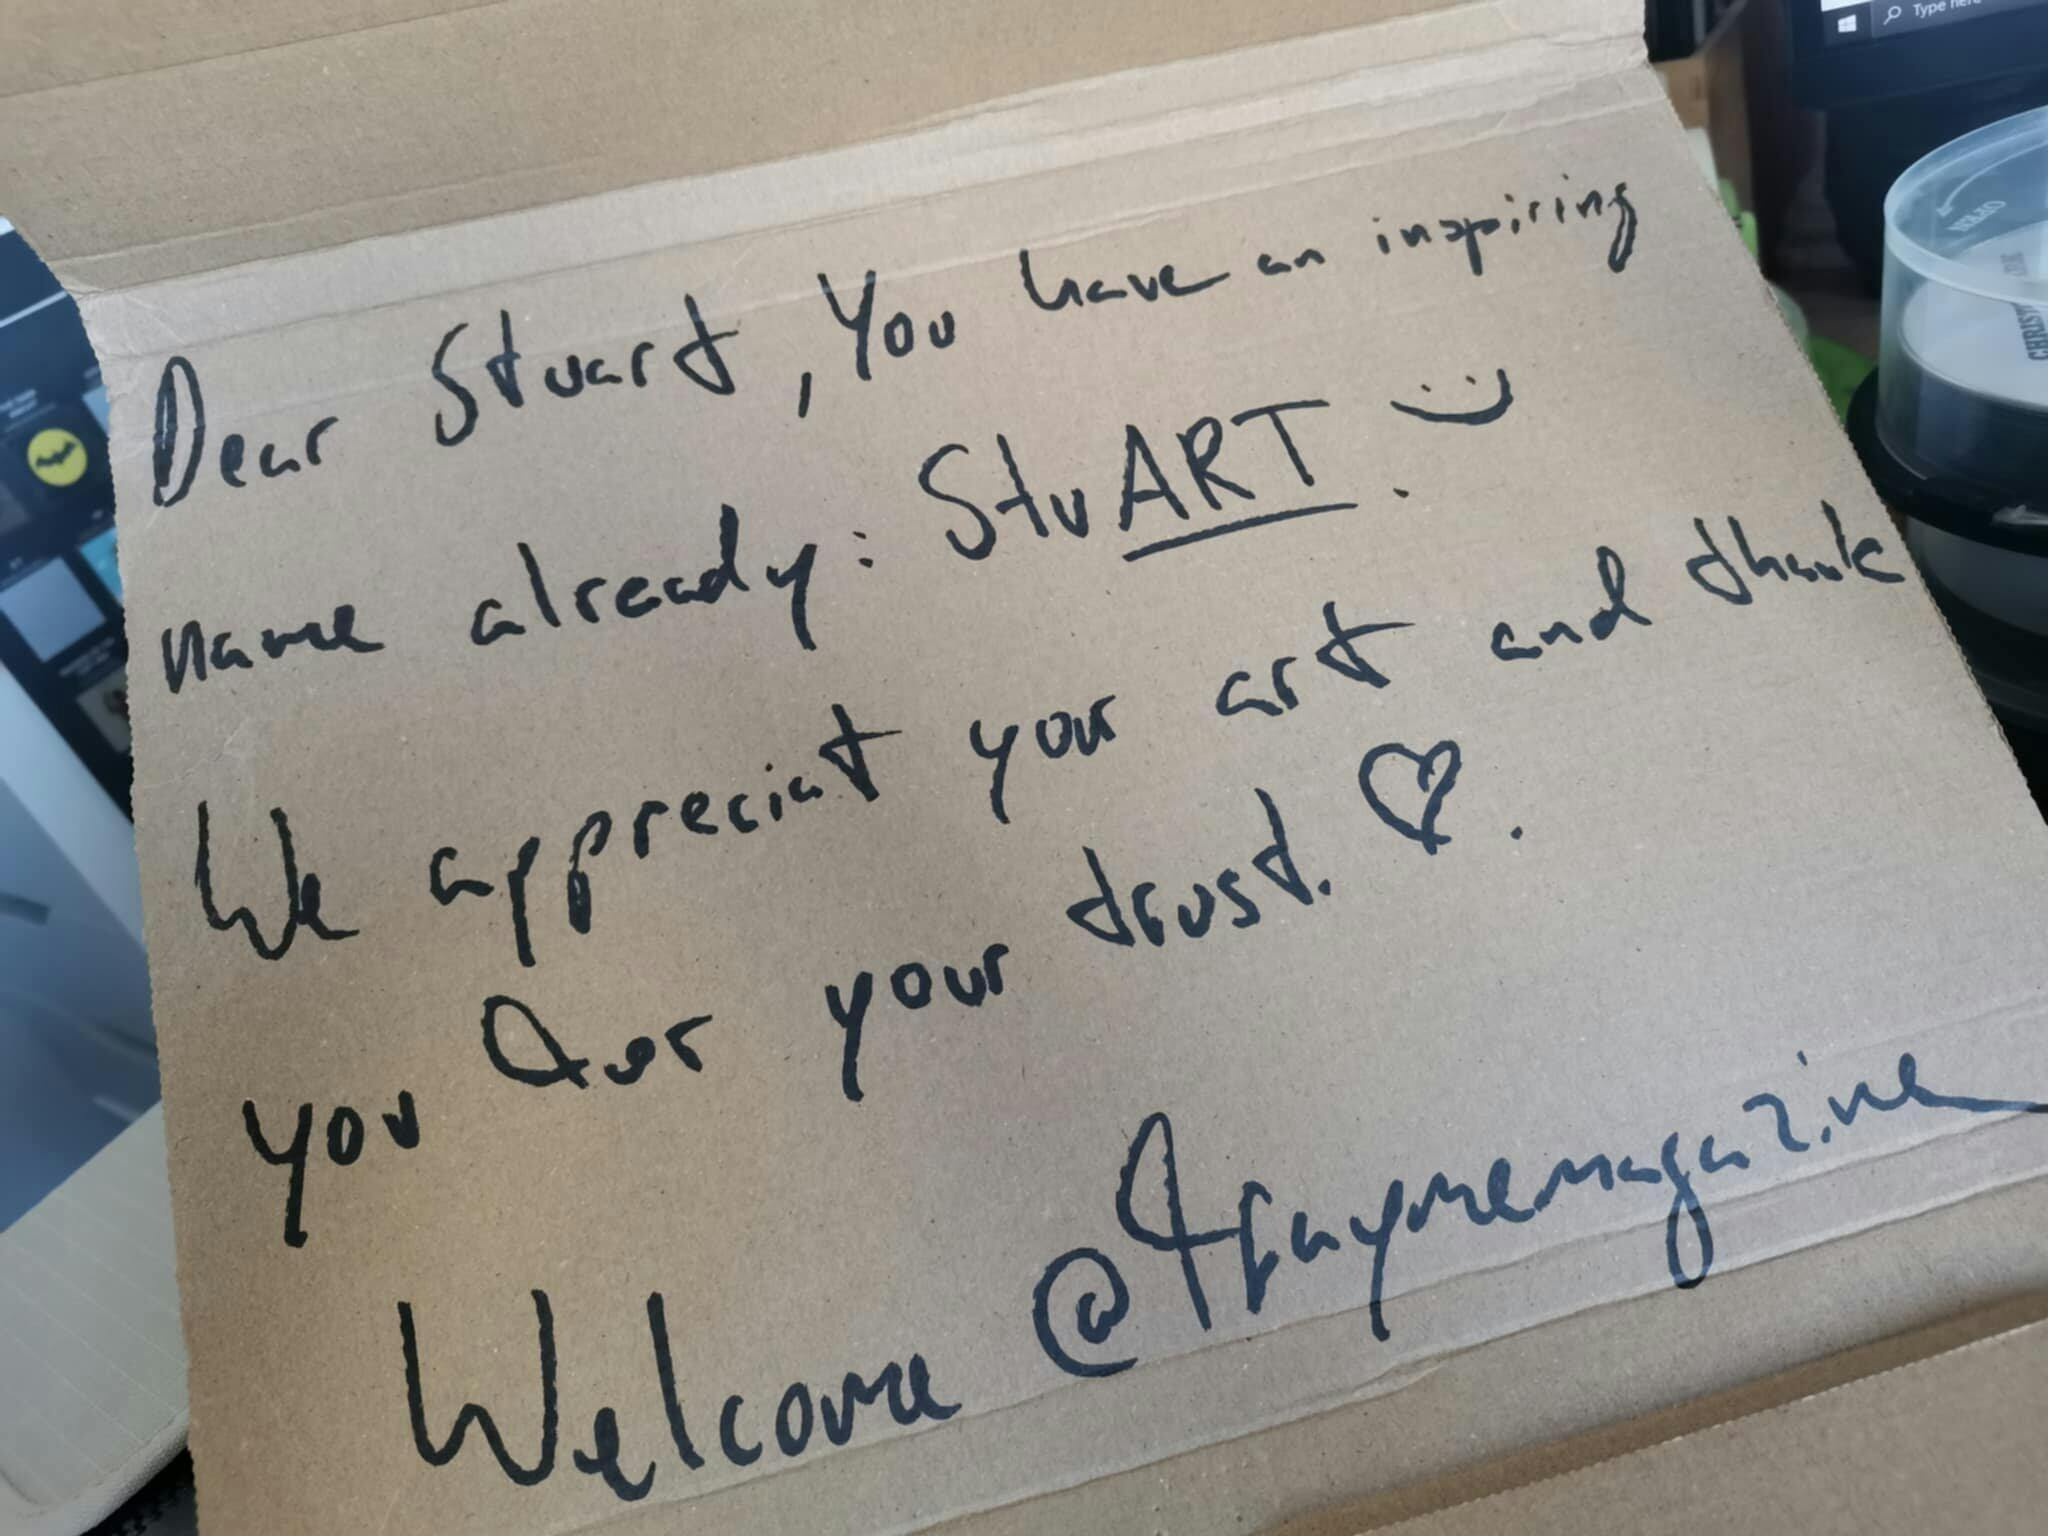 Dear Stuart, You have an inspiring
name already: StuART.
We appreciat your art and thank
you for your trust. ♡.
Welcome @framemagazine
Type here
OPEN